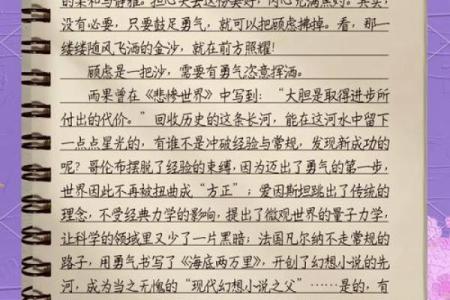 的柔和与静雅。担心失去这份美好，内心充满焦灼。其实，
没有必要，只要鼓足勇气，就可以把顾虑拂掉。看，那一
缕缕随风飞洒的金沙，就在前方照耀！
顾虑是一把沙，需要有勇气恣意挥洒。
雨果曾在《悲惨世界》中写到：“大胆是取得进步所
付出的代价。”回收历史的这条长河，能在这河水中留下
一点点星光的，有谁不是冲破经验与常规，发现新成功的
呢？哥伦布摆脱了经验的束缚，因为迈出了勇气的第一步，
世界因此不再被扭曲成“方正”；爱因斯坦跳出了传统的
理念，不受经典力学的影响，提出了微观世界的量子力学，
让科学的领域里又少了一片黑暗；法国凡尔纳不走常规的
路子，用勇气书写了《海底两万里》，开创了幻想小说的先
河，成为当之无愧的“现代幻想小说之父”……是的，有